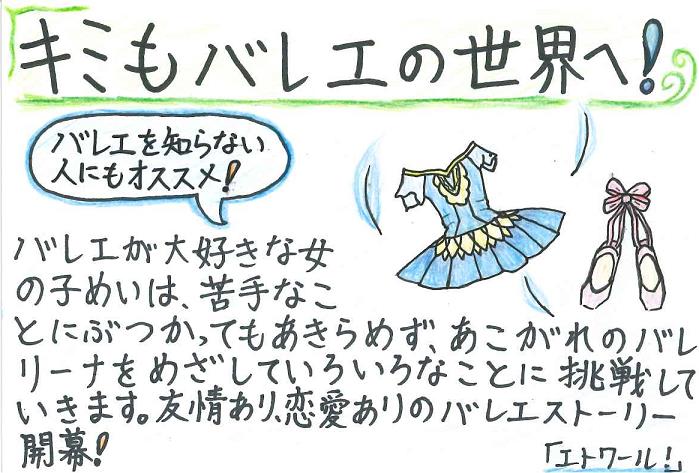 キミもバレエの世界へ!
バレエを知らない
人にもオススメ!
バレエが大好きな女
の子めいは、苦手なこ
とにぶつかってもあきらめず、あこがれのバレ
リーナをめざしていろいろなことに挑戦して
いきます。友情あり、恋愛ありのバレエストーリー
開幕!
「エトワール!」